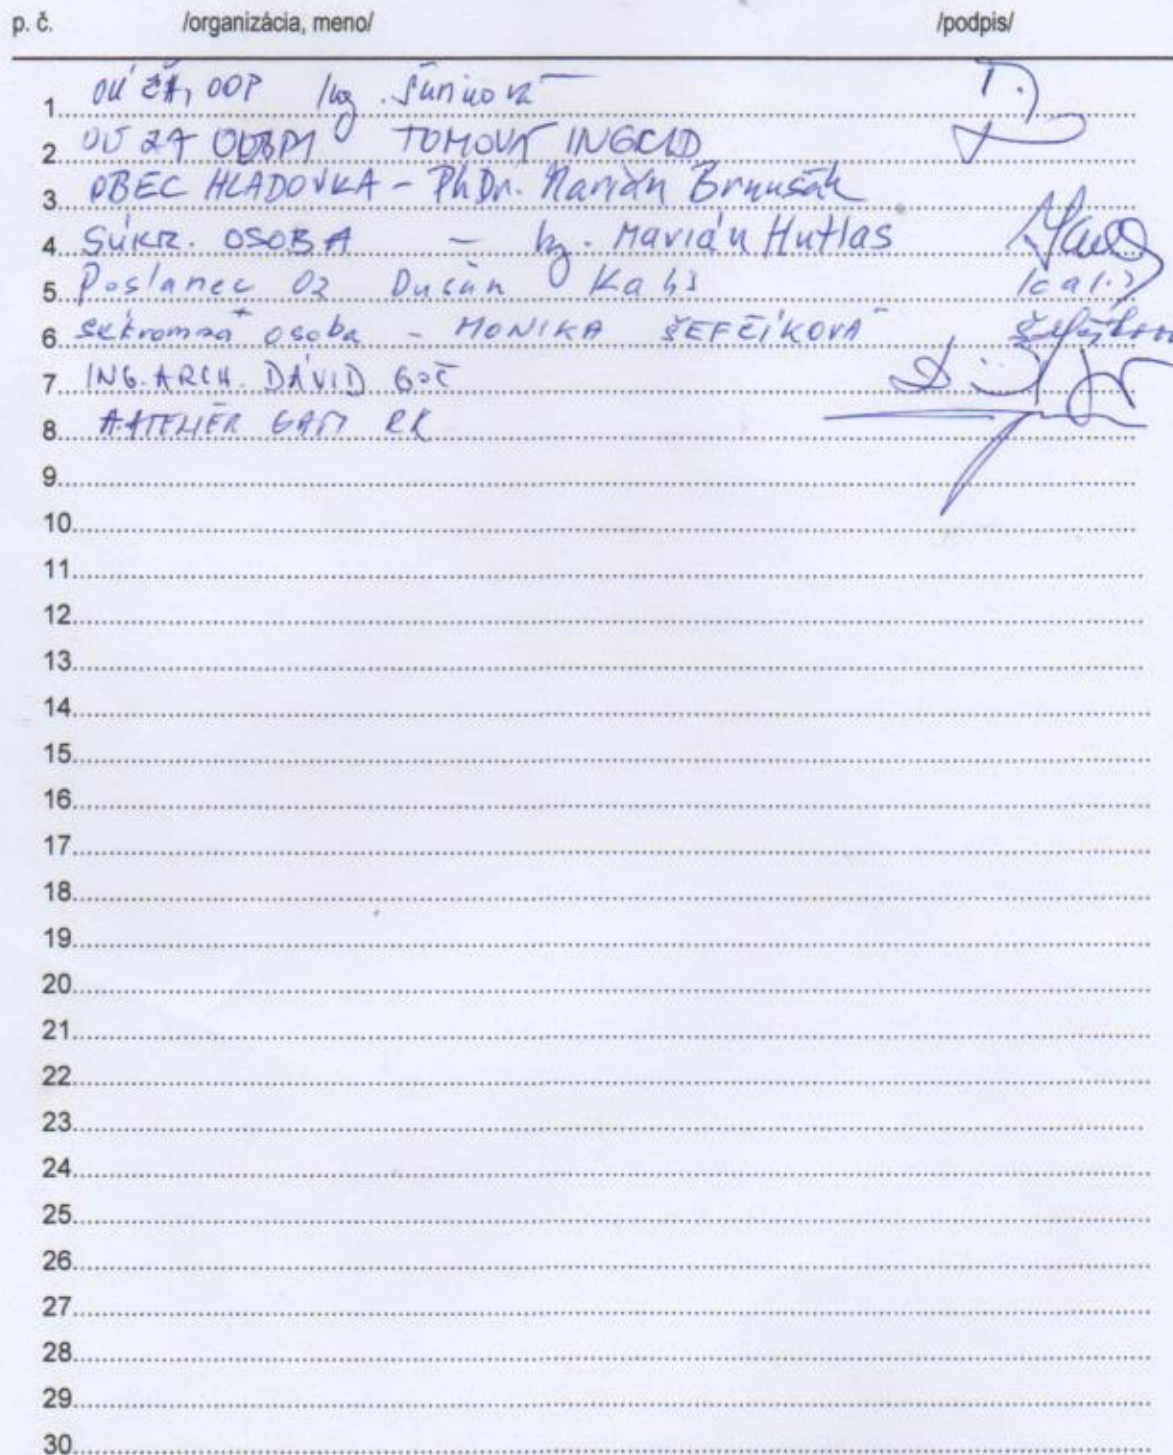 p. č. /organizácia, meno/ /podpis/
1. OÚ ZA, OOP Ing. Šuninová
2. OÚ ZA TOMOVÁ INGRID
3. OBEC HLADOVKA - PhDr. Marián Brnušák
4. SÚKR. OSOBA - Ing. Marián Hutlas
5. Poslanec OZ Dušan Kališ
6. súkromná osoba - MONIKA ŠEFČÍKOVÁ
7. ING. ARCH. DÁVID GOČ
8. A-ATELIÉR GAM RK
9.
10.
11.
12.
13.
14.
15.
16.
17.
18.
19.
20.
21.
22.
23.
24.
25.
26.
27.
28.
29.
30.